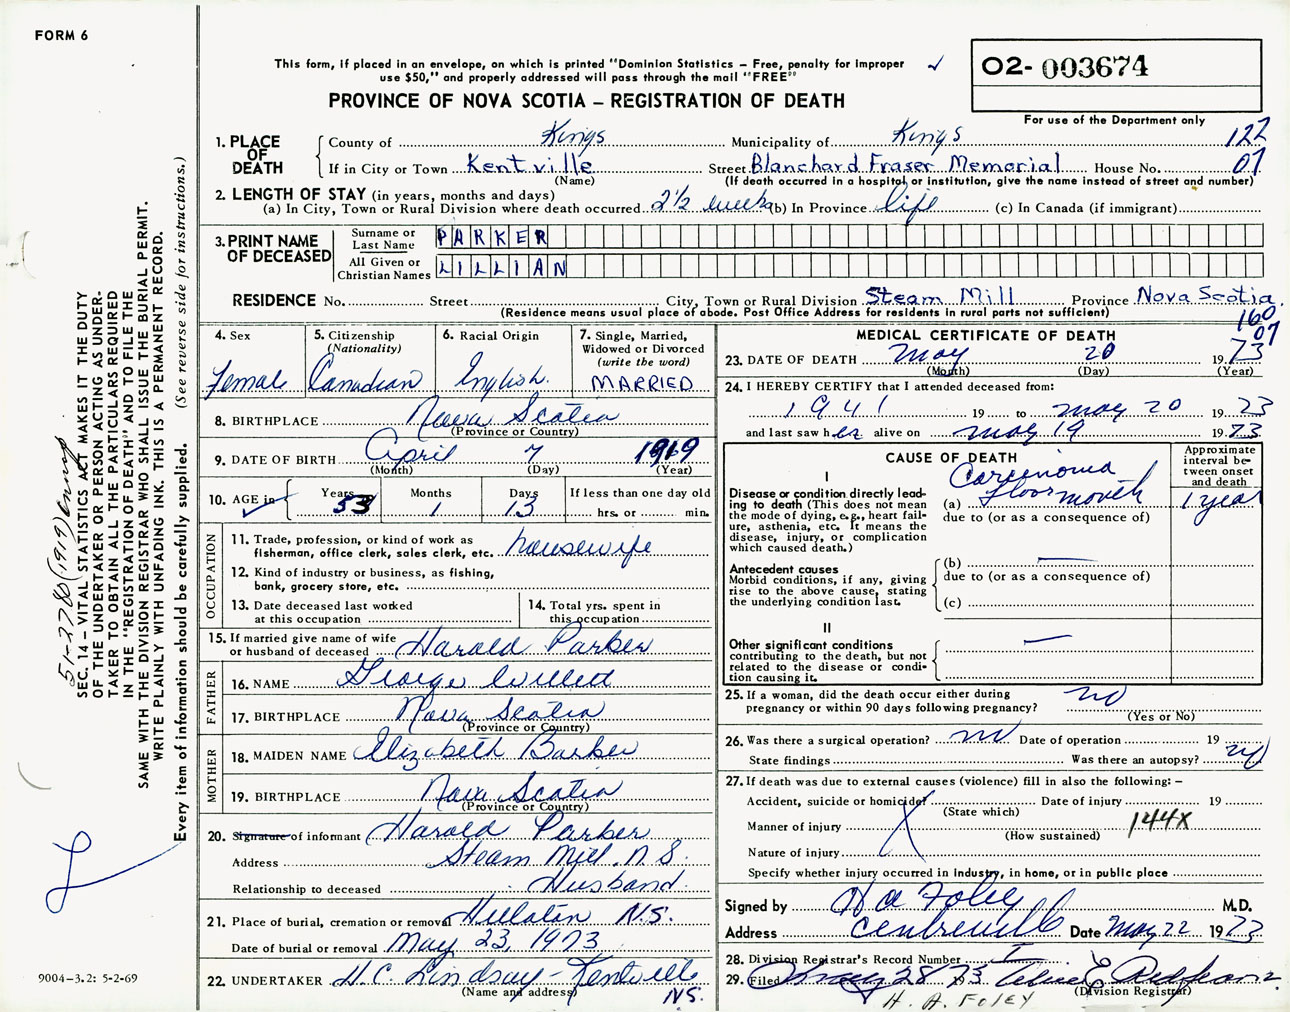 FORM 6
This form, if placed in an envelope, on which is printed "Dominion Statistics – Free, penalty for improper
use $50," and properly addressed will pass through the mail "FREE"
PROVINCE OF NOVA SCOTIA – REGISTRATION OF DEATH
02- 003674
For use of the Department only
1. PLACE OF DEATH
County of Kings Municipality of Kings 122
If in City or Town Kentville Street Blanchard Fraser Memorial House No. 07
(Name) (If death occurred in a hospital or institution, give the name instead of street and number)
2. LENGTH OF STAY (in years, months and days)
(a) In City, Town or Rural Division where death occurred 2½ weeks (b) In Province life (c) In Canada (if immigrant)
3. PRINT NAME OF DECEASED
Surname or Last Name PARKER
All Given or Christian Names LILLIAN
RESIDENCE No. Street City, Town or Rural Division Steam Mill Province Nova Scotia
(Residence means usual place of abode. Post Office Address for residents in rural parts not sufficient) 160
07
4. Sex Female
5. Citizenship (Nationality) Canadian
6. Racial Origin English
7. Single, Married, Widowed or Divorced (write the word) MARRIED
8. BIRTHPLACE Nova Scotia
(Province or Country)
9. DATE OF BIRTH April 7 1919
(Month) (Day) (Year)
10. AGE in Years 53 Months 1 Days 13 If less than one day old hrs. or min.
OCCUPATION
11. Trade, profession, or kind of work as fisherman, office clerk, sales clerk, etc. housewife
12. Kind of industry or business, as fishing, bank, grocery store, etc.
13. Date deceased last worked at this occupation
14. Total yrs. spent in this occupation
15. If married give name of wife or husband of deceased Harold Parker
FATHER
16. NAME George Willett
17. BIRTHPLACE Nova Scotia
(Province or Country)
MOTHER
18. MAIDEN NAME Elizabeth Barker
19. BIRTHPLACE Nova Scotia
(Province or Country)
20. Signature of informant Harold Parker
Address Steam Mill, N.S.
Relationship to deceased Husband
21. Place of burial, cremation or removal Hillaton N.S.
Date of burial or removal May 23, 1973
22. UNDERTAKER H.C. Lindsay - Kentville
(Name and address) N.S.
MEDICAL CERTIFICATE OF DEATH
23. DATE OF DEATH May 20 1973
(Month) (Day) (Year)
24. I HEREBY CERTIFY that I attended deceased from:
1941 19 to May 20 1973
and last saw her alive on May 19 1973
CAUSE OF DEATH
Approximate interval between onset and death
I
Disease or condition directly leading to death (This does not mean the mode of dying, e.g., heart failure, asthenia, etc. It means the disease, injury, or complication which caused death.)
(a) Carcinoma floor mouth 1 year
due to (or as a consequence of)
Antecedent causes
Morbid conditions, if any, giving rise to the above cause, stating the underlying condition last.
(b) —
due to (or as a consequence of)
(c)
II
Other significant conditions contributing to the death, but not related to the disease or condition causing it. —
25. If a woman, did the death occur either during pregnancy or within 90 days following pregnancy? no
(Yes or No)
26. Was there a surgical operation? no Date of operation 19
State findings Was there an autopsy? no
27. If death was due to external causes (violence) fill in also the following: –
Accident, suicide or homicide? Date of injury 19
(State which)
Manner of injury 144X
(How sustained)
Nature of injury
Specify whether injury occurred in industry, in home, or in public place
Signed by H A Foley M.D.
Address Centreville Date May 22 1973
28. Division Registrar's Record Number
29. Filed May 28 1973
(Division Registrar)
H. A. FOLEY
51-2780 (1919)
SEC. 14 – VITAL STATISTICS ACT MAKES IT THE DUTY
OF THE UNDERTAKER OR PERSON ACTING AS UNDER-
TAKER TO OBTAIN ALL THE PARTICULARS REQUIRED
IN THE "REGISTRATION OF DEATH" AND TO FILE THE
SAME WITH THE DIVISION REGISTRAR WHO SHALL ISSUE THE BURIAL PERMIT.
WRITE PLAINLY WITH UNFADING INK. THIS IS A PERMANENT RECORD.
Every item of information should be carefully supplied. (See reverse side for instructions.)
9004-3.2: 5-2-69